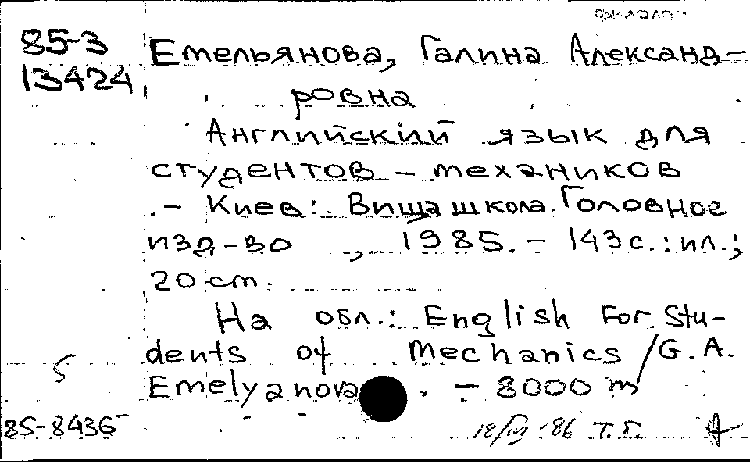 85-3
13424
Емельянова, Галина Александ-
ровна
Английский язык для
студентов - механиков
.- Киев: Вища школа. Головное
изд-во , 1985. - 143 с.: ил.;
20 cm.
На обл.: English For Stu-
dents of Mechanics / G. A.
Emelyanova . - 8000 m
5
85-8436
86 т. г.